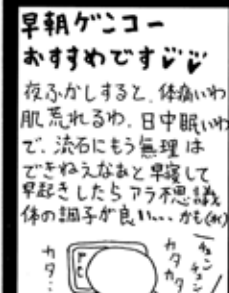 早朝ゲンコー
おすすめです♡♡
夜ふかしすると、体痛いわ
肌荒れるわ、日中眠いわ
で、流石にもう無理は
できねえなあと早寝して
早起きしたらアラ不思議
体の調子が良い…かも(水)
カタ…
PC
カタカタ
チュンチュン